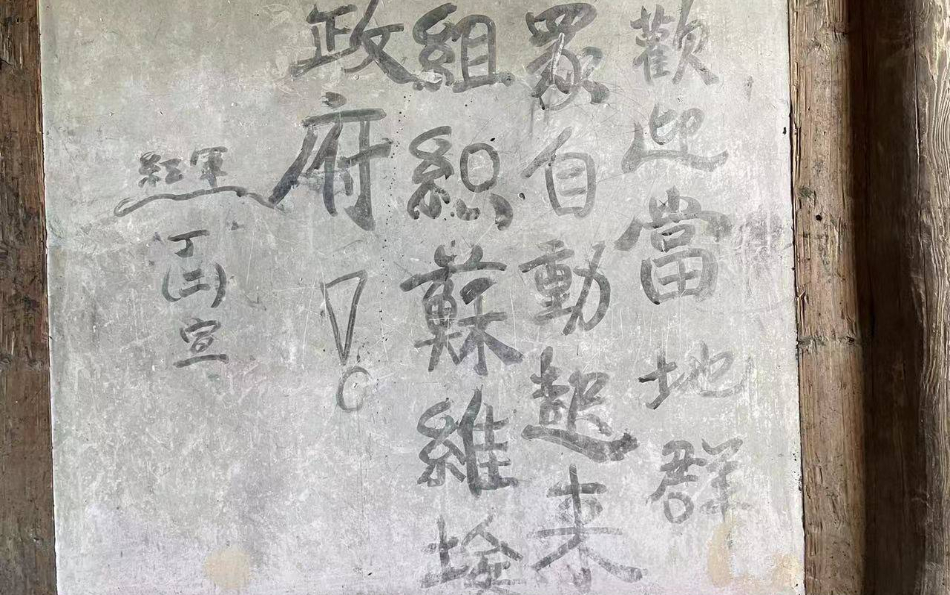 歡迎當地群
眾自動起来
組織蘇維埃
政府！
紅軍
丁(二)宣